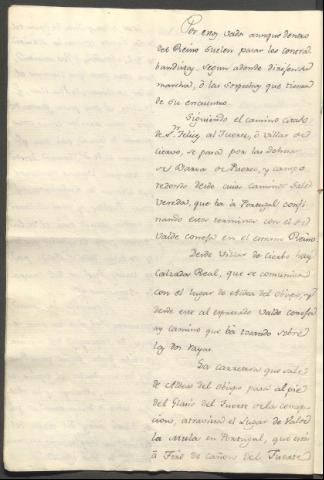 Por esos vados aunque dentro
del Reino suelen pasar los contra-
bandistas, segun adonde dirijen su
marcha, ó las sospechas que tienen
de su encuentro.
Siguiendo el camino
de Sn. Felices al Fuerte, ó Villar de
Ciervo, se pasa por las
de Barva de Puerco, y campo
redondo desde cuio camino sale
vereda, que ba á Portugal confi-
nando estos terminos con el de
Valde conefa en el mismo Reino.
Desde Villar de Ciervo hay
Calzada Real, que se comunica
con el lugar de Aldea del Obispo, y
desde este al espresado Valde conefa
ay camino que ba tocando sobre
las dos rayas.
La carretera que sale
de Aldea del Obispo para al pie
del Glasis del Fuerte de la concep-
cion, atraviesa el Lugar de Valde
la Mula en Portugal, que está
á Tiro de cañon del Fuerte